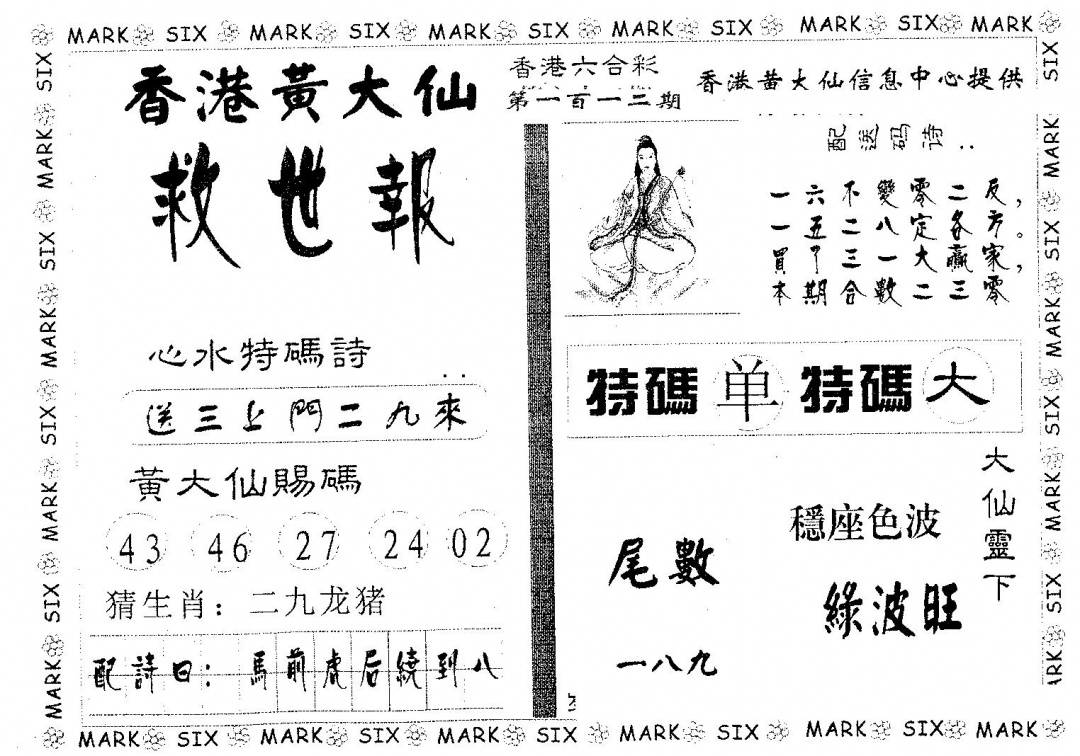 MARK SIX MARK SIX MARK SIX MARK SIX MARK SIX MARK
香港黃大仙
救世報
香港六合彩
第一百一三期
香港黄大仙信息中心提供
配送码诗:
一六不變零二反，
一五二八定各方。
買下三一大贏家，
本期合數二三零
心水特碼詩
送三上門二九來
特碼 单 特碼 大
黃大仙賜碼
43 46 27 24 02
猜生肖：二九龙猪
配詩曰：馬前虎后繞到八
尾數
一八九
穩座色波
綠波旺
大仙靈下
SIX MARK SIX MARK SIX MARK SIX MARK
SIX MARK SIX MARK SIX MARK SIX ARK
MARK SIX MARK SIX MARK SIX MARK SIX MARK SIX MARK